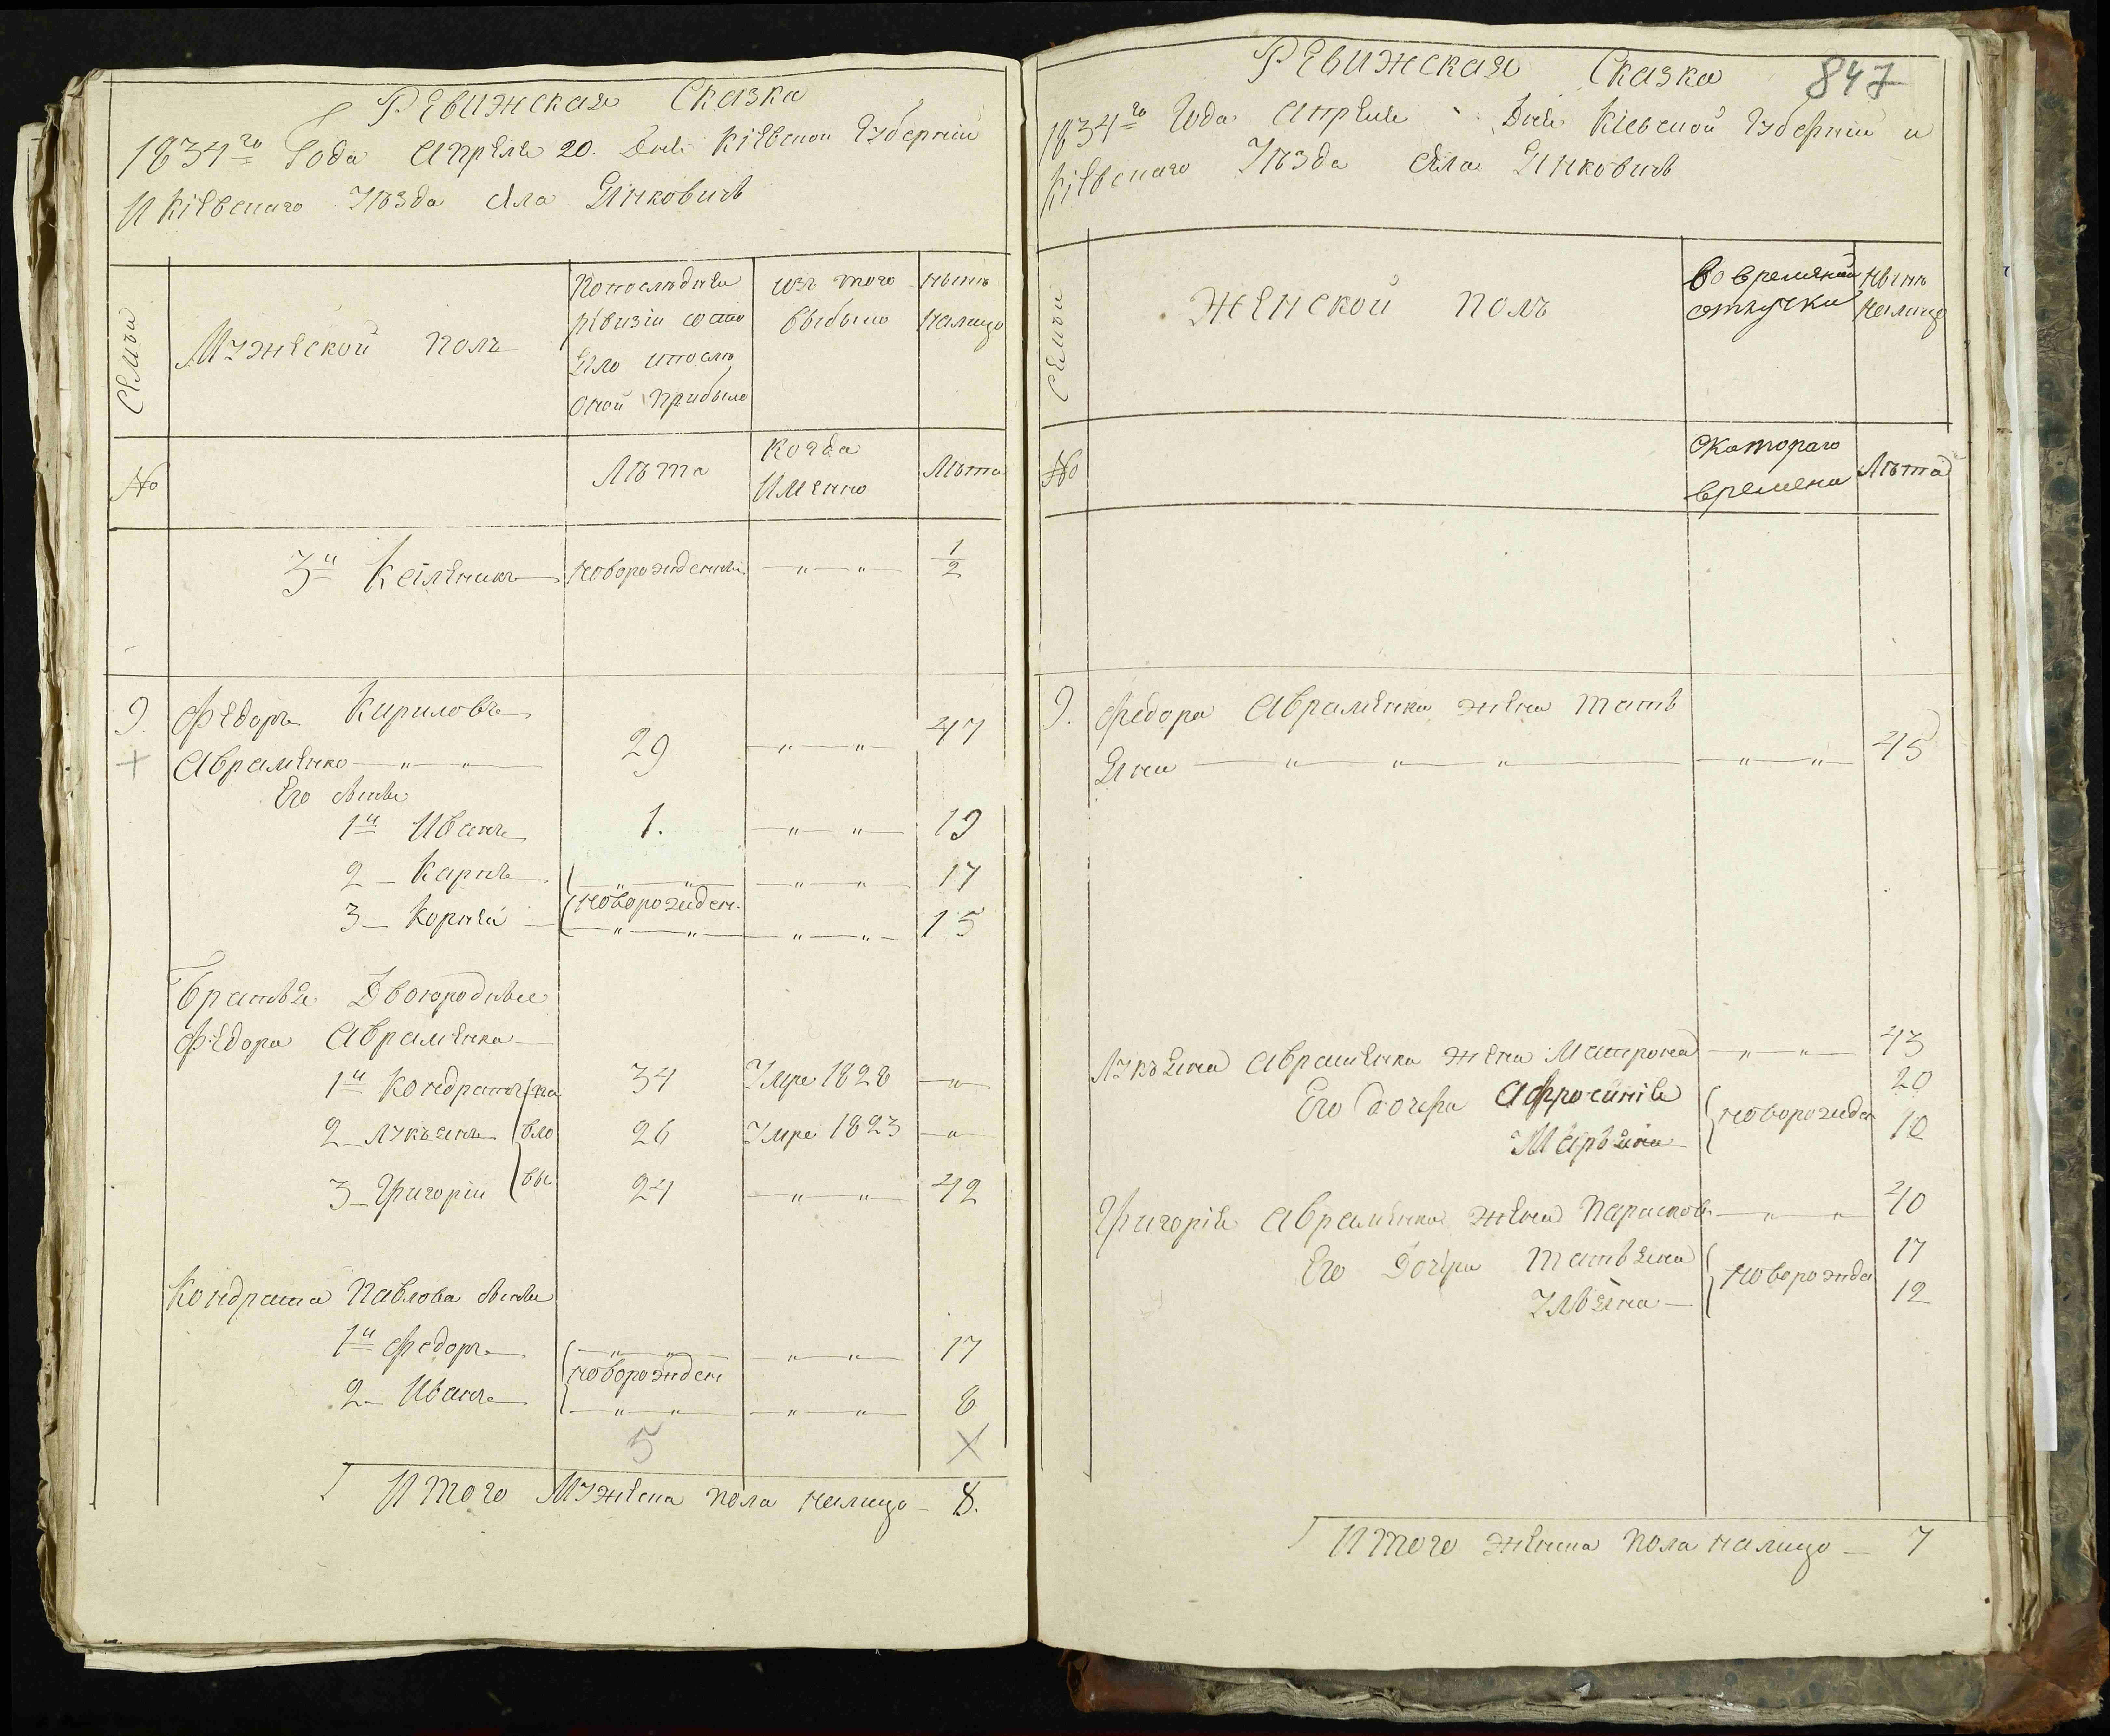 Ревижская Сказка
1834го Года Апреля 20. Дня Кіевской Губерніи
И Кіевскаго Уѣзда Села Янковичь
Семьи
Мужеской полъ
Копослѣдней
ревизіи состо
яло ипослѣ
оной прибыло
изъ того
выбыло
нынѣ
налицо
№
Лѣта
Когда
Именно
Лѣта
3й новорожденны — " — " — 1/2
9. Федоръ Кириловъ
Авраменко — " — " — 29 — " — " — 47
Его сыны
1й Иванъ 1. — " — " — 19
2 — Карпъ — " — " — — " — " — 17
новорожден.
3 — Корней — " — " — — " — " — 15
Братья Двоюродные
Федора Авраменка
1й Кондратъ Па 34 Умре 1828 — " —
2 — Лукьянъ вло 26 Умре 1823 — " —
3 — Григорій вы 24 — " — " — 42
Кондрата Павлова сыны
1й Федоръ — " — " — — " — " — 17
новорожден
2 — Иванъ — " — " — — " — " — 8
5 X
Итого Мужеска пола налицо — 8.
847
Ревижская Сказка
1834го Года Апреля " Дня Кіевской Губерніи и
Кіевскаго Уѣзда Села Янковичь
Семьи
Женской полъ
Во временной
отлучки
нынѣ
налицо
№
Скотораго
времена
Лѣта
9. Федора Авраменка жена Тать
яна — " — " — " — — " — " — 45
Лукьяна Авраменка жена Матрона — " — " — 43
Его дочери Афросинія 20
новорожден
Марьяна 18
Григорія Авраменка жена Парасковія — " — " — 40
Его Дочери Татьяна 17
новорожден
Ульяна — 12
Итого женска пола налицо — 7